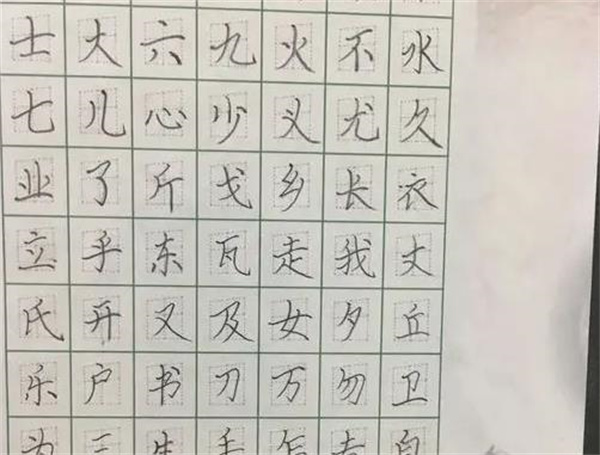 士大六九火不水
七儿心少义尤久
业了斤戈乡长衣
立乎东瓦走我丈
氏开又及女夕丘
乐户书刀万勿卫